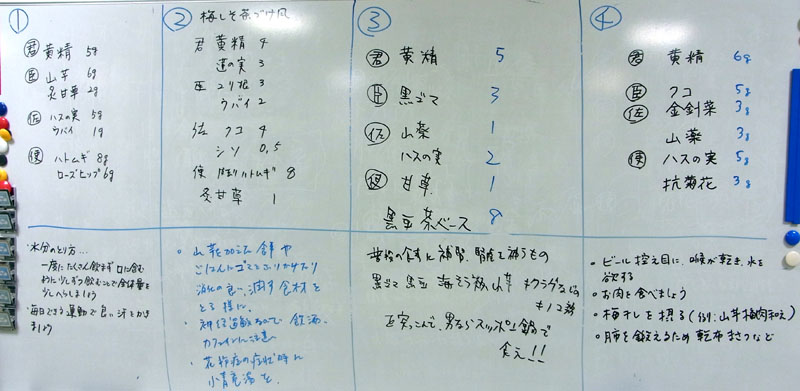 ①
君 黄精 5g
臣 山芋 6g
炙甘草 2g
佐 ハスの実 5g
ウバイ 1g
使 ハトムギ 8g
ローズヒップ 6g
・水分のとり方…
一度にたくさん飲まず口に含む
ように少しずつ飲むことで全体量を
少しへらしましょう
・毎日できる運動で良い汗をかき
ましょう
② 梅しそ茶づけ風
君 黄精 4
蓮の実 3
臣 ユリ根 3
ウバイ 2
佐 クコ 4
シソ 0.5
使 ハトムギ 8
炙甘草 1
・山芋 食事や
ごはんにゴマをふりかけたり
消化の良い、潤す食材を
とる様に。
・神経過敏なので 飲酒、
カフェインに注意
・花粉症の症状時に
小青竜湯を。
③
君 黄精 5
臣 黒ゴマ 3
佐 山薬 1
ハスの実 2
使 甘草 1
黒豆茶ベース 8
普段の食事に補腎、腎陰を補うもの
黒ゴマ 黒豆 海そう類 山芋 キクラゲなどの
キノコ類
を突っこんで、男ならスッポン鍋で
食え!!
④
君 黄精 6g
臣 クコ 5g
佐 金針菜 3g
山薬 3g
使 ハスの実 5g
抗菊花 3g
・ビール控え目に、喉が乾き、水を
欲する
・お肉を食べましょう
・梅干しを摂る(例:山芋梅肉和え)
・肺を鍛えるため 乾布まさつなど